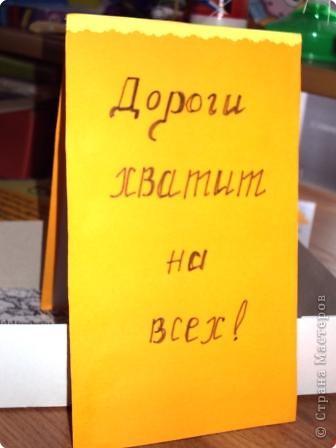 Дороги
хватит
на
всех!
© Страна Мастеров